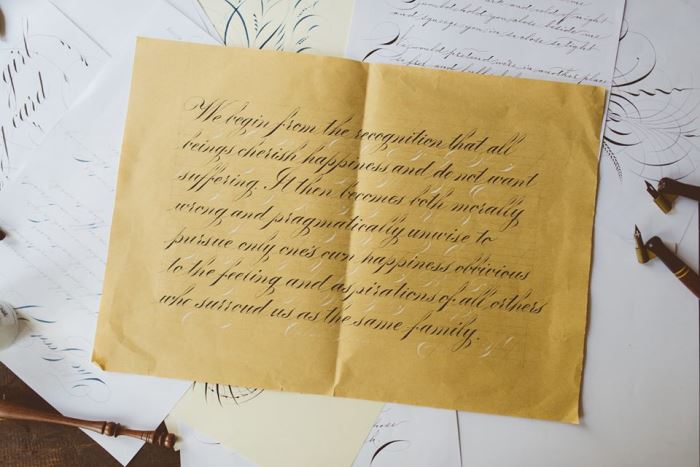 We begin from the recognition that all
beings cherish happiness and do not want
suffering. It then becomes both morally
wrong and pragmatically unwise to
pursue only one's own happiness oblivious
to the feeling and aspirations of all orthers
who surroud us as the same family.
and squeeze you in so close so tight
girl
card